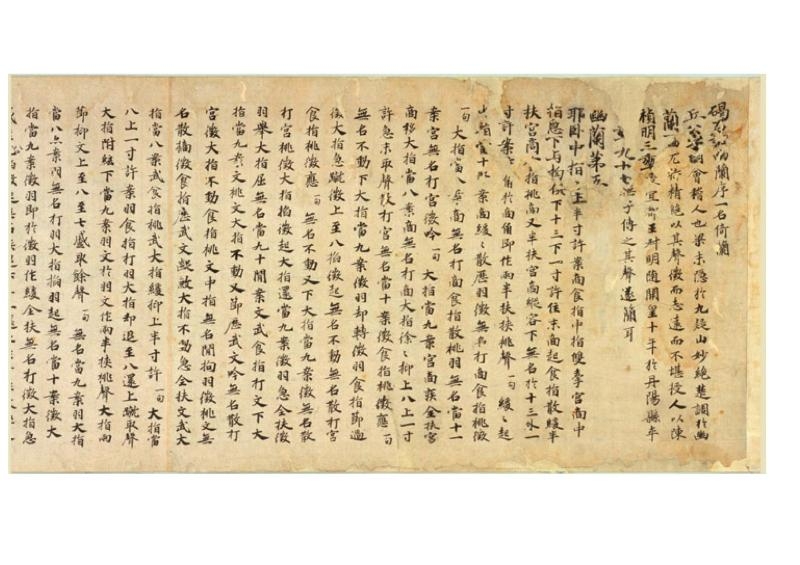 碣石調幽蘭序一名倚蘭
丘公字明會稽人也梁末隱於九疑山妙絕楚調於幽
蘭一曲尤特精絕以其聲微而志遠而不堪授人以陳
禎明三年授宜都王叔明隨開皇十年於丹陽縣卒
九十七無子傳之其聲遂簡耳
幽蘭第五
耶臥中指上半寸許案商食指中指雙牽宮商中
指急下與拘俱下十三下一寸許住末商起食指散緩半
扶宮商食指挑商又半扶宮商縱容下無名於十三外一
寸許案商角於商角即作兩半扶挾挑聲 一句 緩緩起
當十案商緩緩散歷羽徵無名打商食指挑徵
一句 大指當八案商無名打商食指散挑羽無名當十一
案宮無名打宮徵吟 一句 大指當九案宮商疾全扶宮
商移大指當八案商無名打商大指徐徐抑上八上一寸
許急末取聲散打宮無名當十案徵食指挑徵應 一句
無名不動下大指當九案徵羽却轉徵羽食指節過
徐大指急蹴徵上至八掐徵起無名不動無名散打宮
食指挑徵應 一句 無名不動又下大指當九案徵羽無名散
打宮徵大指掐徵起大指還當九案徵羽急全扶徵
羽舉大指屈無名當九十間案文武食指打文下大
指當九案文挑文大指不動又節應武文吟無名散打
宮徵大指不動食指挑文中指無名間拘羽徵挑文無
名散摘徵食指應武文緩大指不動急全扶文武大
指當八案武食指挑武大指緩抑上半寸許 一句 大指當
八上一寸許案羽食指打羽大指却退至八還上蹴取聲
大指附絃下當九案羽文於羽文作兩半扶挾挑聲 大指兩
節抑文上至八至七盛取餘聲 一句 無名當九案羽大指
當八案羽無名打羽大指掐羽起無名當十案徵大
指當九案徵羽即於徵羽作緩全扶無名打徵大指急